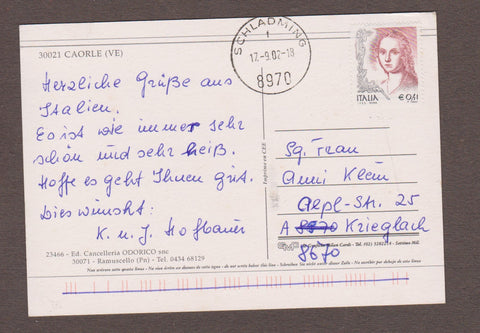 30021 CAORLE (VE)
Herzliche Grüße aus
Italien.
Es ist wie immer sehr
schön und sehr heiß.
Hoffe es geht Ihnen gut.
Dies wünscht:
K. u. J. Hofbauer
23466 - Ed. Cancelleria ODORICO snc
30071 - Ramuscello (Pn) - Tel. 0434 68129
SCHLADMING
1
17.-9.02-18
8970
ITALIA
€ 0,41
Imprimé en CEE
Sg. Frau
Anni Klein
Alpl-Str. 25
A 8970 Krieglach
8670
Non scrivere sotto questa linea - Ne pas écrire au-dessous de cette ligne - do not write below this line - Schreiben Sie nicht unter dieser Zeile - No escribir por debajo de esta linea